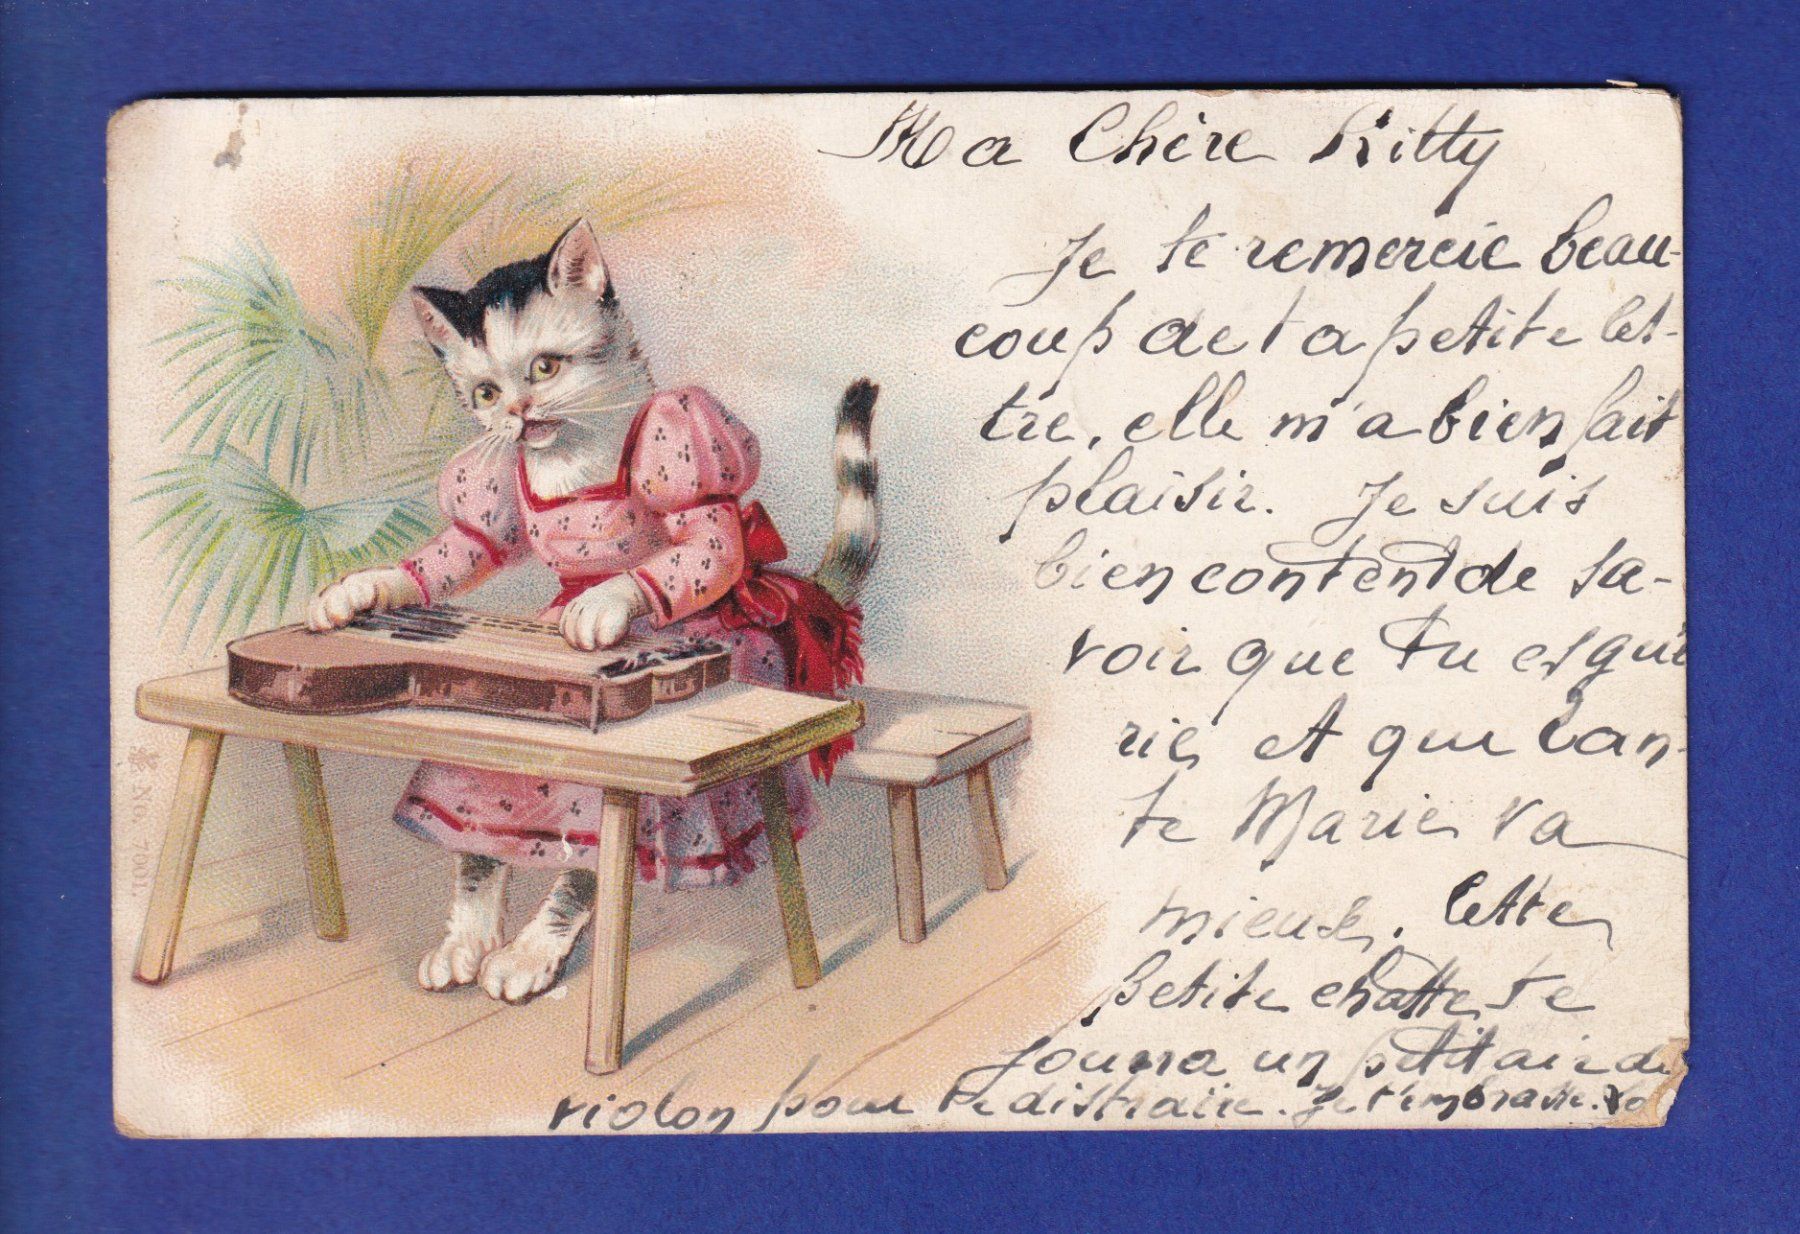 Ma Chère Kitty
Je te remercie beau-
coup de ta petite let-
tre, elle m'a bien fait
plaisir. Je suis
bien content de sa-
voir que tu es gué
rie, et que tan-
te Marie va
mieux. Cette
petite chatte te
jouera un petit air de
violon pour te distraire. Je t'embrasse.
No. 7001.